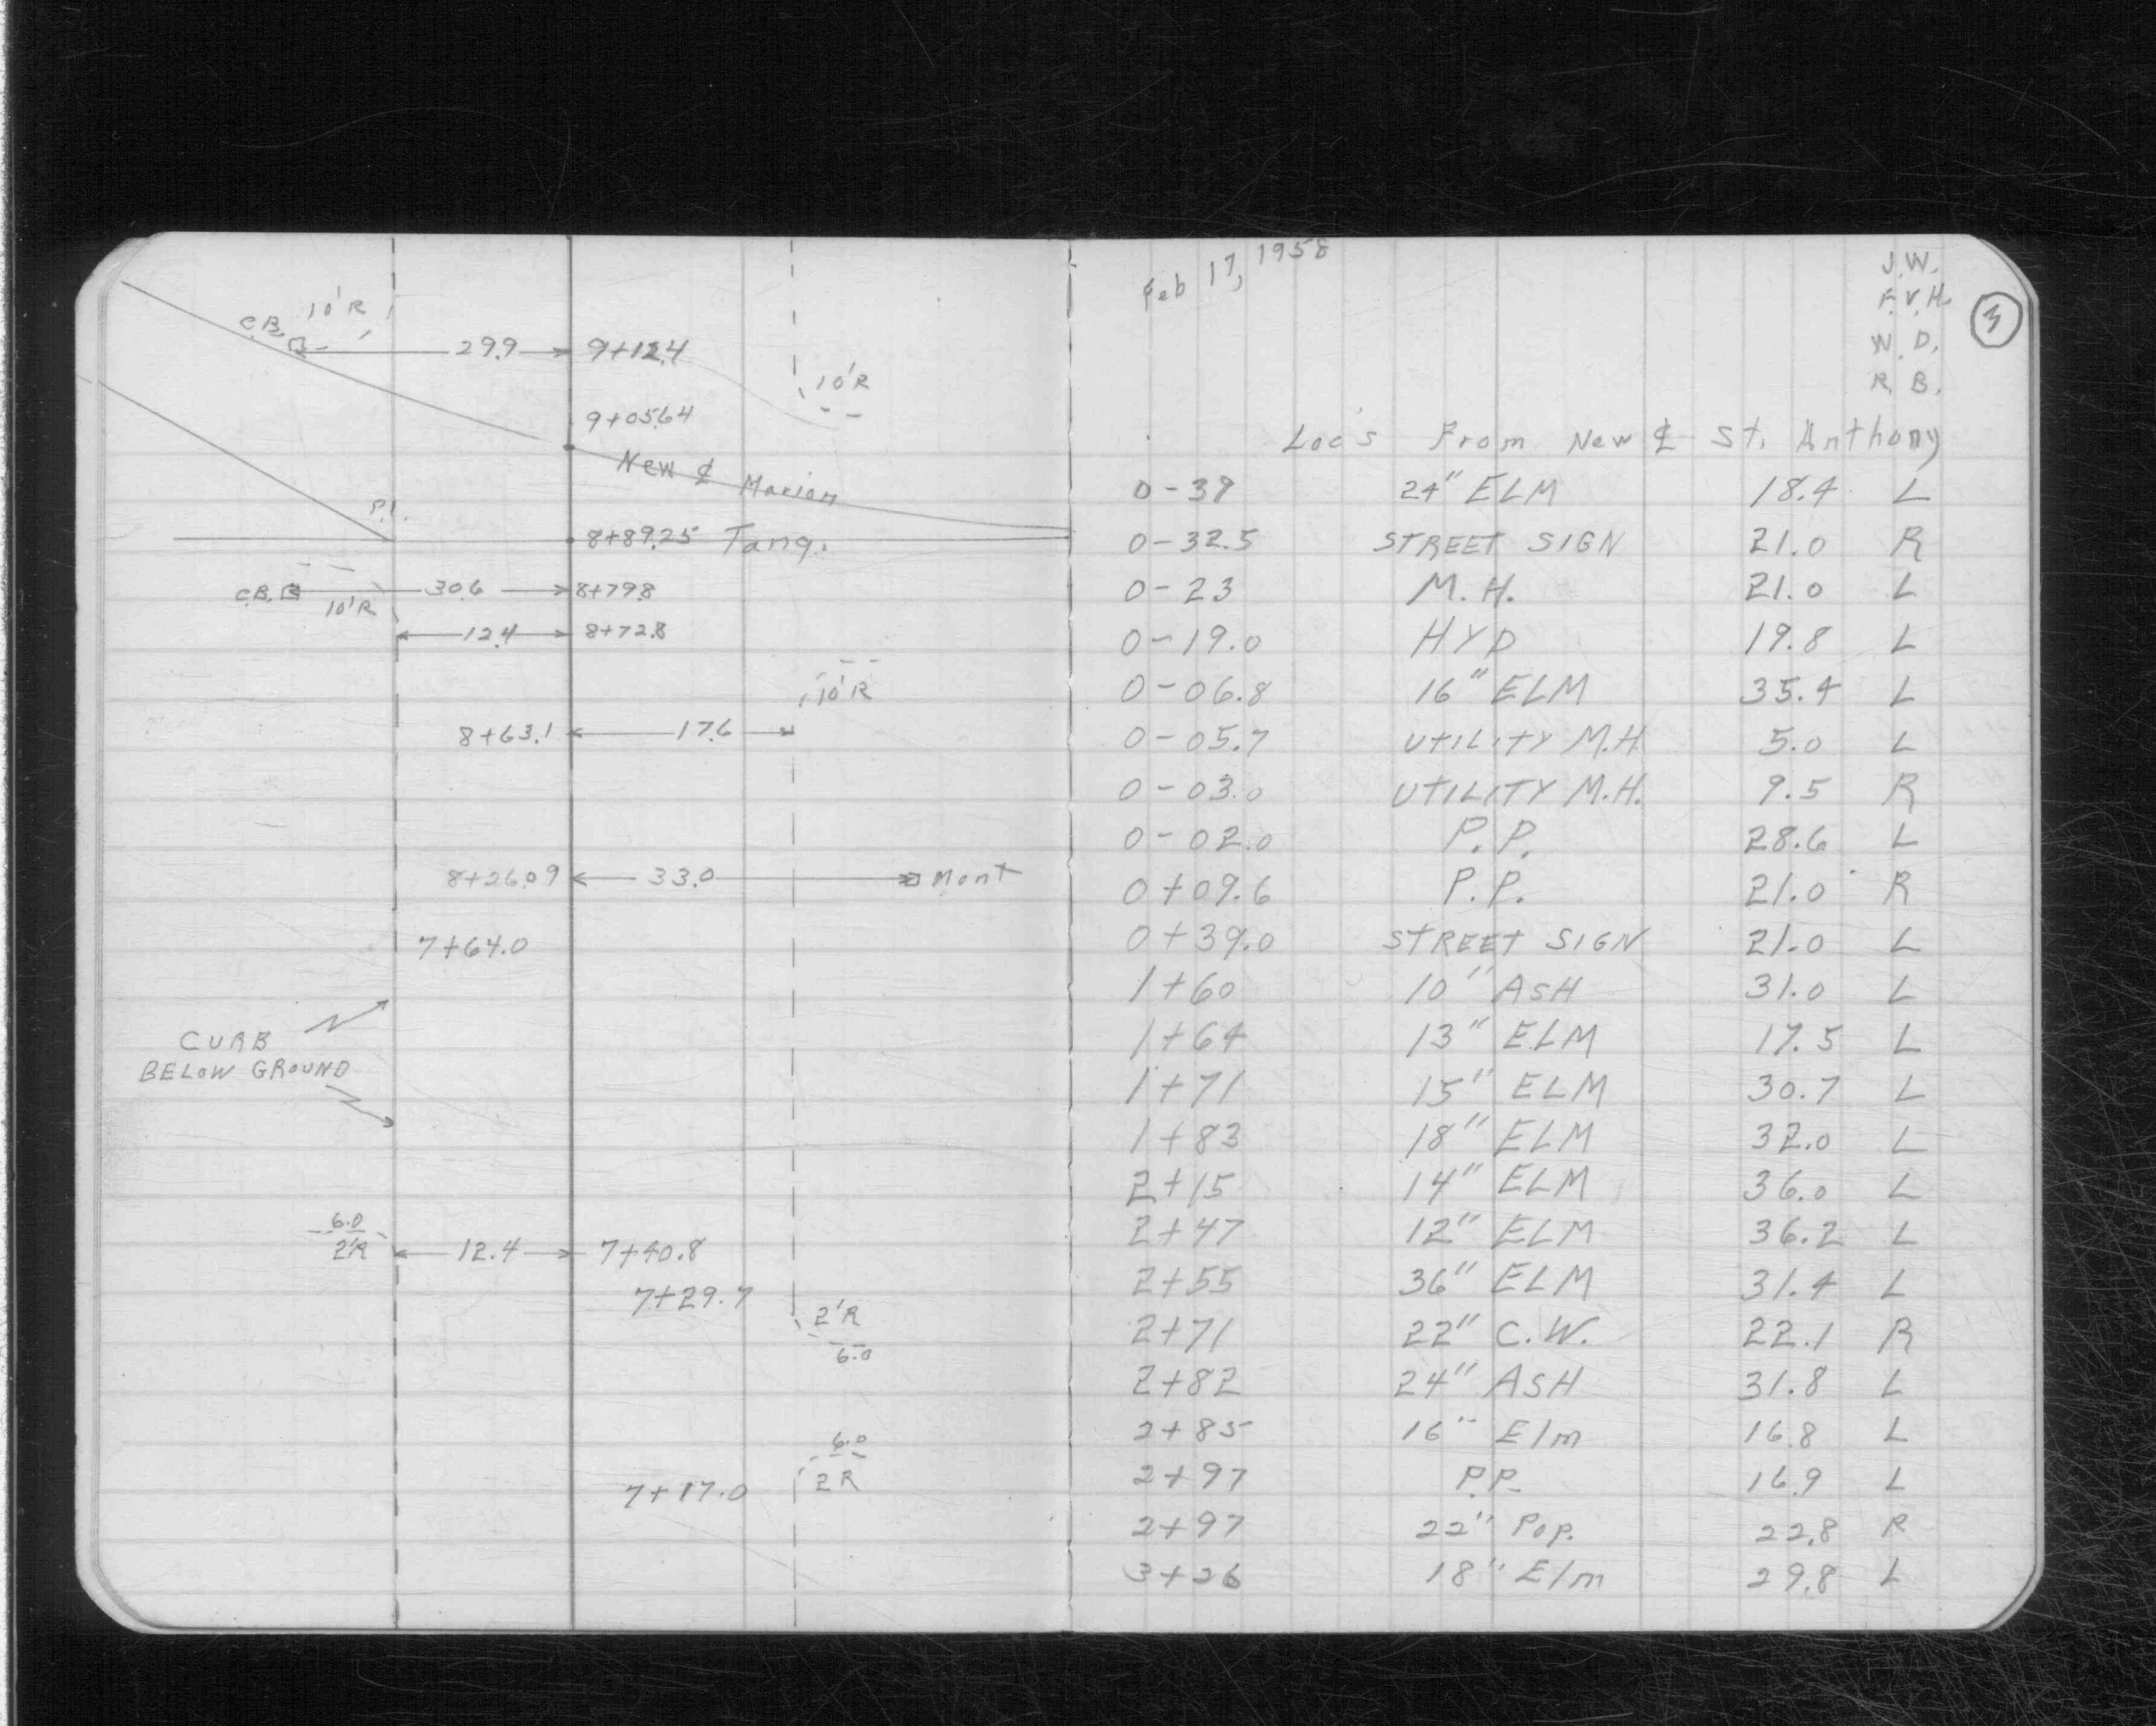 10'R
C.B.
29.9 9+12.4
10'R
9+05.64
New ℄ Marion
P.I.
8+89.25 Tang.
C.B. 30.6 8+79.8
10'R
12.4 8+72.8
10'R
8+63.1 17.6
8+26.09 33.0 Mont
7+64.0
CURB
BELOW GROUND
6.0
2'R 12.4 7+40.8
7+29.7
2'R
6.0
6.0
2R
7+17.0
Feb 17, 1958
J.W.
F.V.H.
3
W.D.
R.B.
Loc's From New ℄ St. Anthony
0-39 24" ELM 18.4 L
0-32.5 STREET SIGN 21.0 R
0-23 M.H. 21.0 L
0-19.0 HYD 19.8 L
0-06.8 16" ELM 35.4 L
0-05.7 UTILITY M.H. 5.0 L
0-03.0 UTILITY M.H. 9.5 R
0-02.0 P.P. 28.6 L
0+09.6 P.P. 21.0 R
0+39.0 STREET SIGN 21.0 L
1+60 10" ASH 31.0 L
1+64 13" ELM 17.5 L
1+71 15" ELM 30.7 L
1+83 18" ELM 32.0 L
2+15 14" ELM 36.0 L
2+47 12" ELM 36.2 L
2+55 36" ELM 31.4 L
2+71 22" C.W. 22.1 R
2+82 24" ASH 31.8 L
2+85 16" Elm 16.8 L
2+97 P.P. 16.9 L
2+97 22" Pop. 22.8 R
3+26 18" Elm 29.8 L